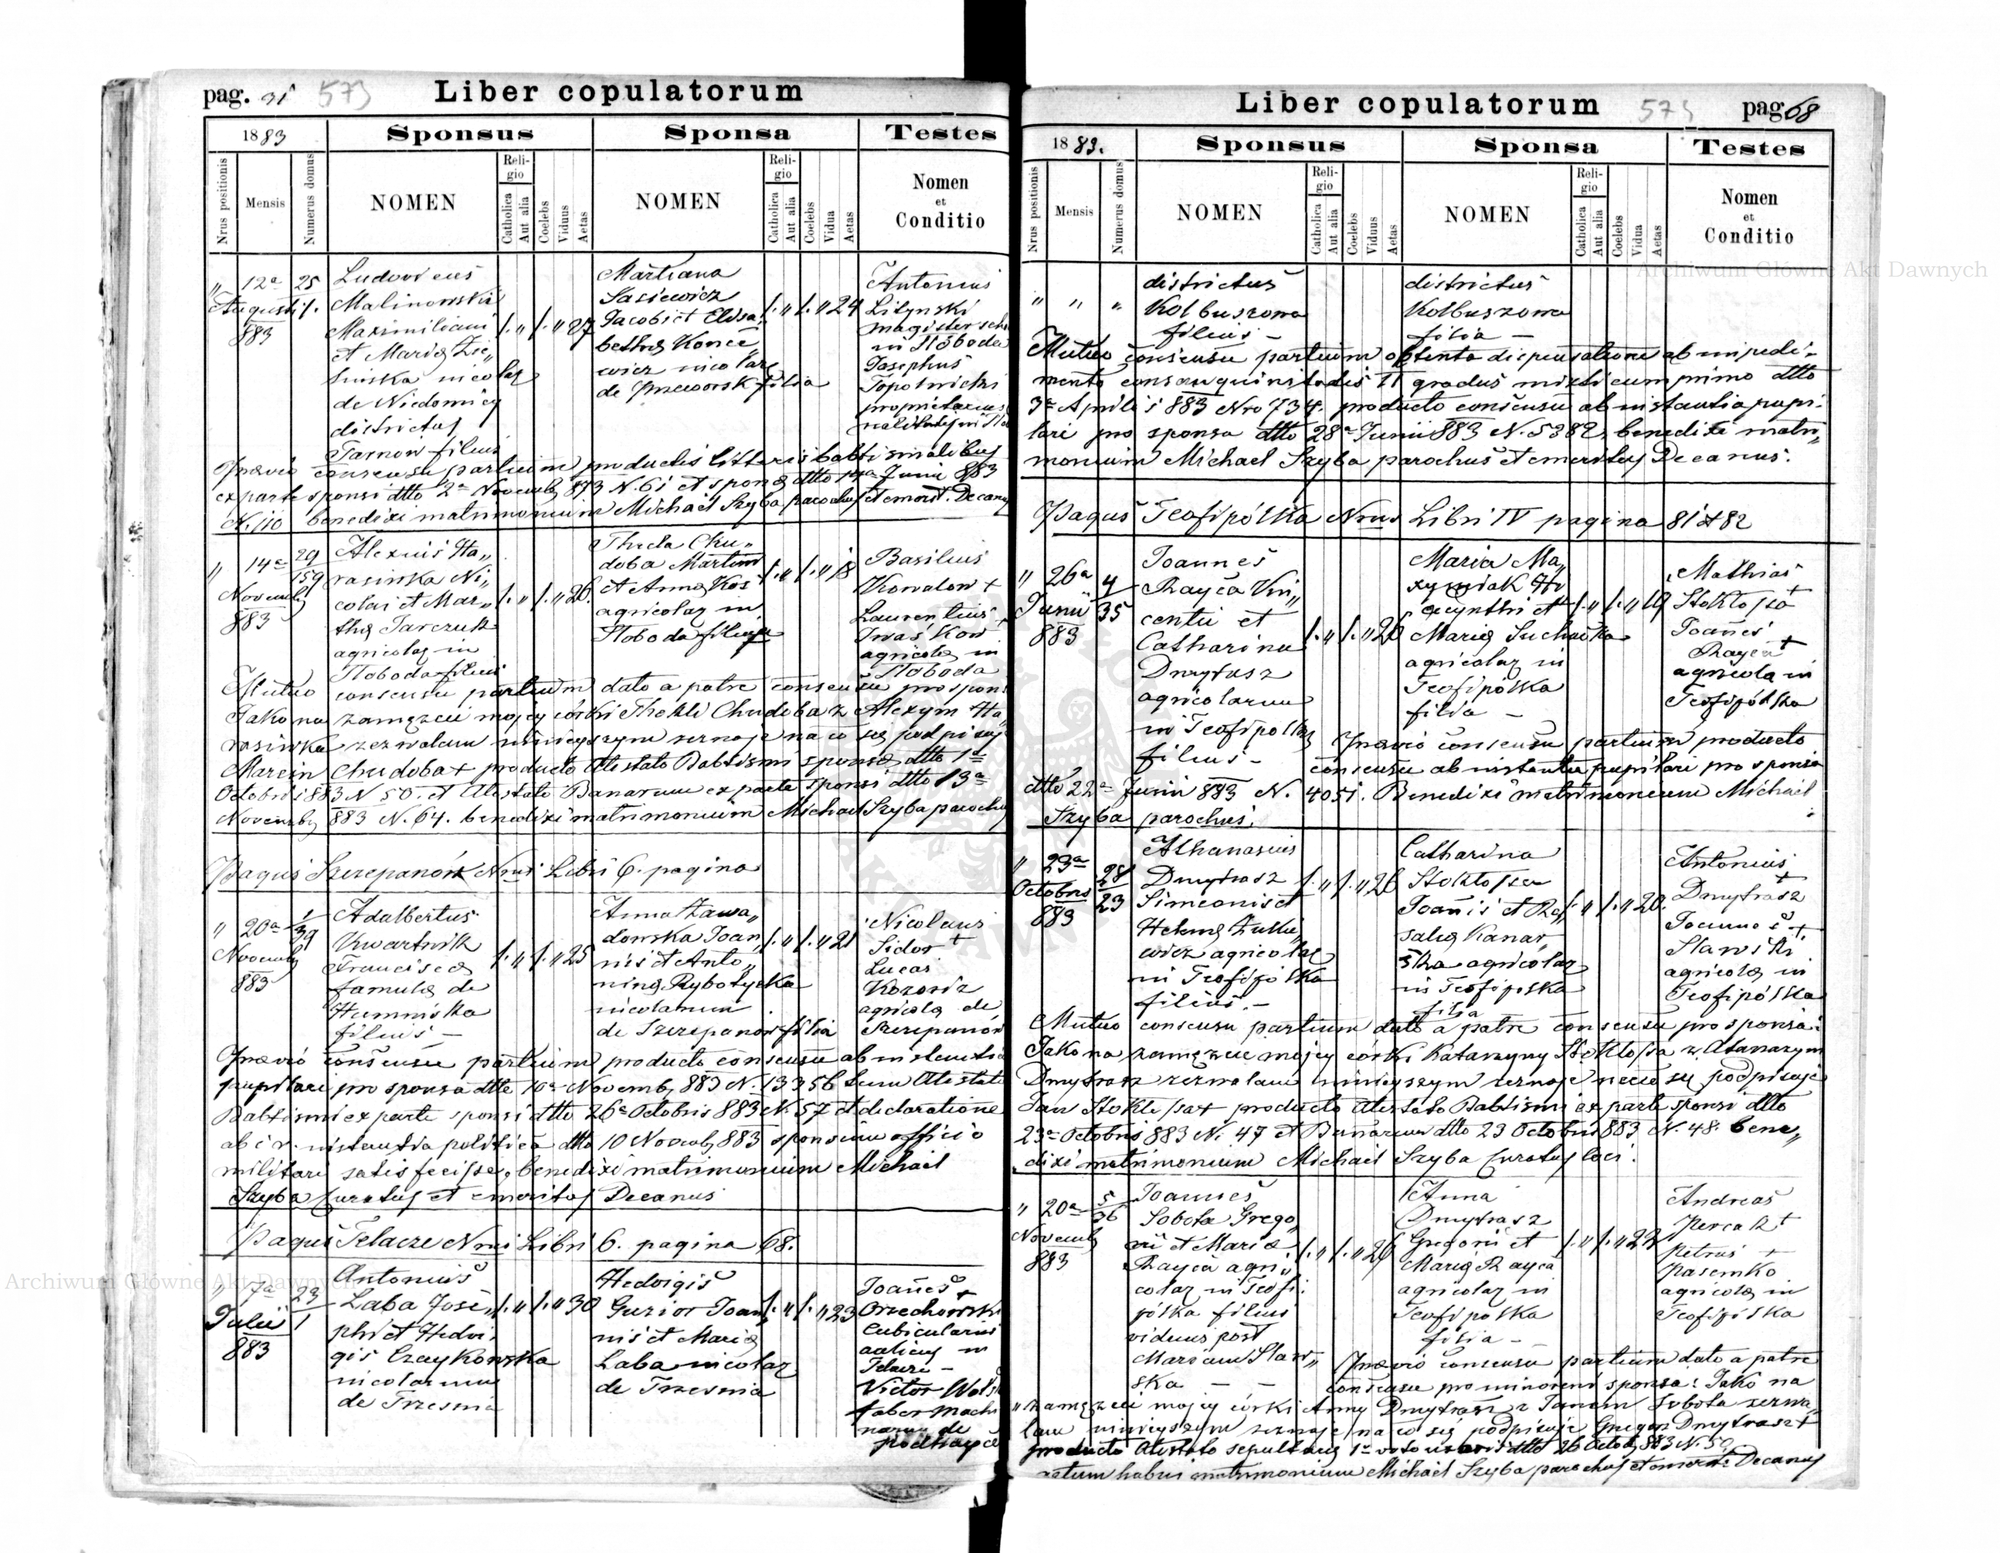 pag. 573
Liber copulatorum
1883
Sponsus
Sponsa
Testes
Nrus positionis
Mensis
Numerus domus
NOMEN
Religio
Catholica
Aut alia
Coelebs
Viduus
Aetas
NOMEN
Religio
Catholica
Aut alia
Coelebs
Vidua
Aetas
Nomen
et
Conditio
" 12a 25
Augusti 1.
883
Malinowski
Maximiliani
et Maria
de Niedomice
districtus
Tarnow filius
27
Marianna
Sasiewicz
Jacobi et Elisa
betha
de Przeworsk filia
24
Antonius
Litynski
magister
in Sloboda
Josephus
Topolnicki
proprietarius
Praevio consensu partium productis litteris babtismalibus
ex parte sponsi dtto 2a Novemb 873 N. 61 et sponsa dtto Junii 883
N. 110 benedixi matrimonium Michael Szyba parochus et emerit. Decanus
" 14a 29
159
Novemb
883
Alexius Ha„
rasiwka Ni„
colai et Mar„
tha Tarczuk
agricolar in
Sloboda filius
26
Thecla Chu„
doba Martini
et Anna Kos
agricolar in
Sloboda filia
18
Basilius
Kowalow +
Laurentius
Iwaskow
agricola in
Sloboda
Mutuo consensu partium dato a patre consensu pro sponsa
Jako na zamązcie mojej córki Thekli Chudoba z Alexym Ha„
rasiwka zezwalam niniejszym zeznaje na co się podpisuje
Marcin Chudoba + producto Atestato Babtismi sponsa dtto 1a
Octobris 883 N 50. et Atestato Banorum ex parte sponsi dtto 13a
Novemb 883 N. 64. benedixi matrimonium Michael Szyba parochus
Pagus Szczepanów Nrus Libri 6. pagina
" 20a 1
39
Novemb
883
Adalbertus
Kwartnik
Francisca
famula de
Humniska
filius —
25
Anna Zawa„
dowska Joan„
nis et Anto„
nina Rybotycka
incolarum
de Szczepanow filia
21
Nicolaus
Sidor +
Lucas
Kozoriz
agricola de
Szczepanów
Praevio consensu partium producto consensu ab instantia
pupillari pro sponsa dtto 10a Novemb 883 N. 13356 tum Atestato
Babtismi ex parte sponsi dtto 26a Octobris 883 N. 57 et declaratione
ab instantia politica dtto 10 Novemb 883 sponsum officio
militari satisfecisse, benedixi matrimonium Michael
Szyba Curatus et emeritus Decanus
Pagus Telacze Nrus Libri 6. pagina 68.
" 7a 23
Julii 1
883
Antonius
Laba Jose„
phi et Hedvi„
gis Czaykowska
incolarum
de Trzesnia
30
Hedvigis
Guzior Joan
nis et Maria
Laba incolar
de Trzesnia
23
Joanes +
Orzechowski
Cubicularius
in
Telacze —
Victor
faber machi
narum de
Podhayce
Liber copulatorum
573
pag 68
1883.
Sponsus
Sponsa
Testes
Nrus positionis
Mensis
Numerus domus
NOMEN
Religio
Catholica
Aut alia
Coelebs
Viduus
Aetas
NOMEN
Religio
Catholica
Aut alia
Coelebs
Vidua
Aetas
Nomen
et
Conditio
Archiwum Główne Akt Dawnych
" " "
districtus
Kolbuszowa
filius —
districtus
Kolbuszowa
filia —
Mutuo consensu partium obtenta dispensatione ab impedi„
mento consanguinitatis II gradus mixti cum primo dtto
3a Aprilis 883 Nro 734. producto consensu ab instantia pupi„
lari pro sponsa dtto 28a Junii 883 N. 5382, benedixi matri„
monium Michael Szyba parochus et emeritus Decanus.
Pagus Teofipólka Nrus Libri IV pagina 81 & 82
" 26a 4
Junii 35
883
Joannes
Rayca Vin„
centii et
Catharina
Dmytrasz
agricolarum
in Teofipolka
filius —
26
Maria Ma„
Hy
acynthi et
Maria Suchacka
agricolar in
Teofipólka
filia —
19
Mathias +
Stoklosa
Joanes +
Rayca
agricola in
Teofipólka
Praevio consensu partium producto
consensu ab instantia pupilari pro sponsa
dtto 22a Junii 883 N. 4051. Benedixi matrimonium Michael
Szyba parochus.
" 23a 28
Octobris 23
883
Athanasius
Dmytrasz
Simeonis et
Helena
agricolar
in Teofipólka
filius. —
26
Catharina
Stoklosa
Joanis et Ro„
salia Kanar„
ska agricolar
in Teofipolka
filia
20.
Antonius +
Dmytrasz
Joannes +
Slawski
agricola in
Teofipólka
Mutuo consensu partium dato a patre consensu pro sponsa:
Jako na zamązcie mojej córki Katarzyny Stoklosa z Atanazym
Dmytrasz zezwalam niniejszym zeznaje na co się podpisuje
Jan Stoklosa + producto Atestato Babtismi ex parte sponsi dtto
23a Octobris 883 N. 47 et Banorum dtto 23 Octobris 883 N. 48. bene„
dixi matrimonium Michael Szyba Curatus loci.
" 20a 5
36
Novemb
883
Joannes
Sobota Grego„
rii et Maria
Rayca agri„
colar in Teofi„
pólka filius
viduus post
Mariam Slaw„
ska — —
26
Anna
Dmytrasz
Gregorii et
Maria Rayca
agricolar in
Teofipolka
filia —
22
Andreas
Percak +
Petrus +
Pasemko
agricola in
Teofipolka
Praevio consensu partium dato a patre
consensu pro minorena sponsa: Jako na
zamązcie mojej córki Anny Dmytrasz z Janem Sobota zezwa„
lam niniejszym zeznaje na co się podpisuje Gregor Dmytrasz +
producto Atestato sepultura 1a voto uxoris dtto 26 Octob 883 N. 52
ratum habui matrimonium Michael Szyba parochus et emerit. Decanus
Archiwum Główne Akt Dawnych